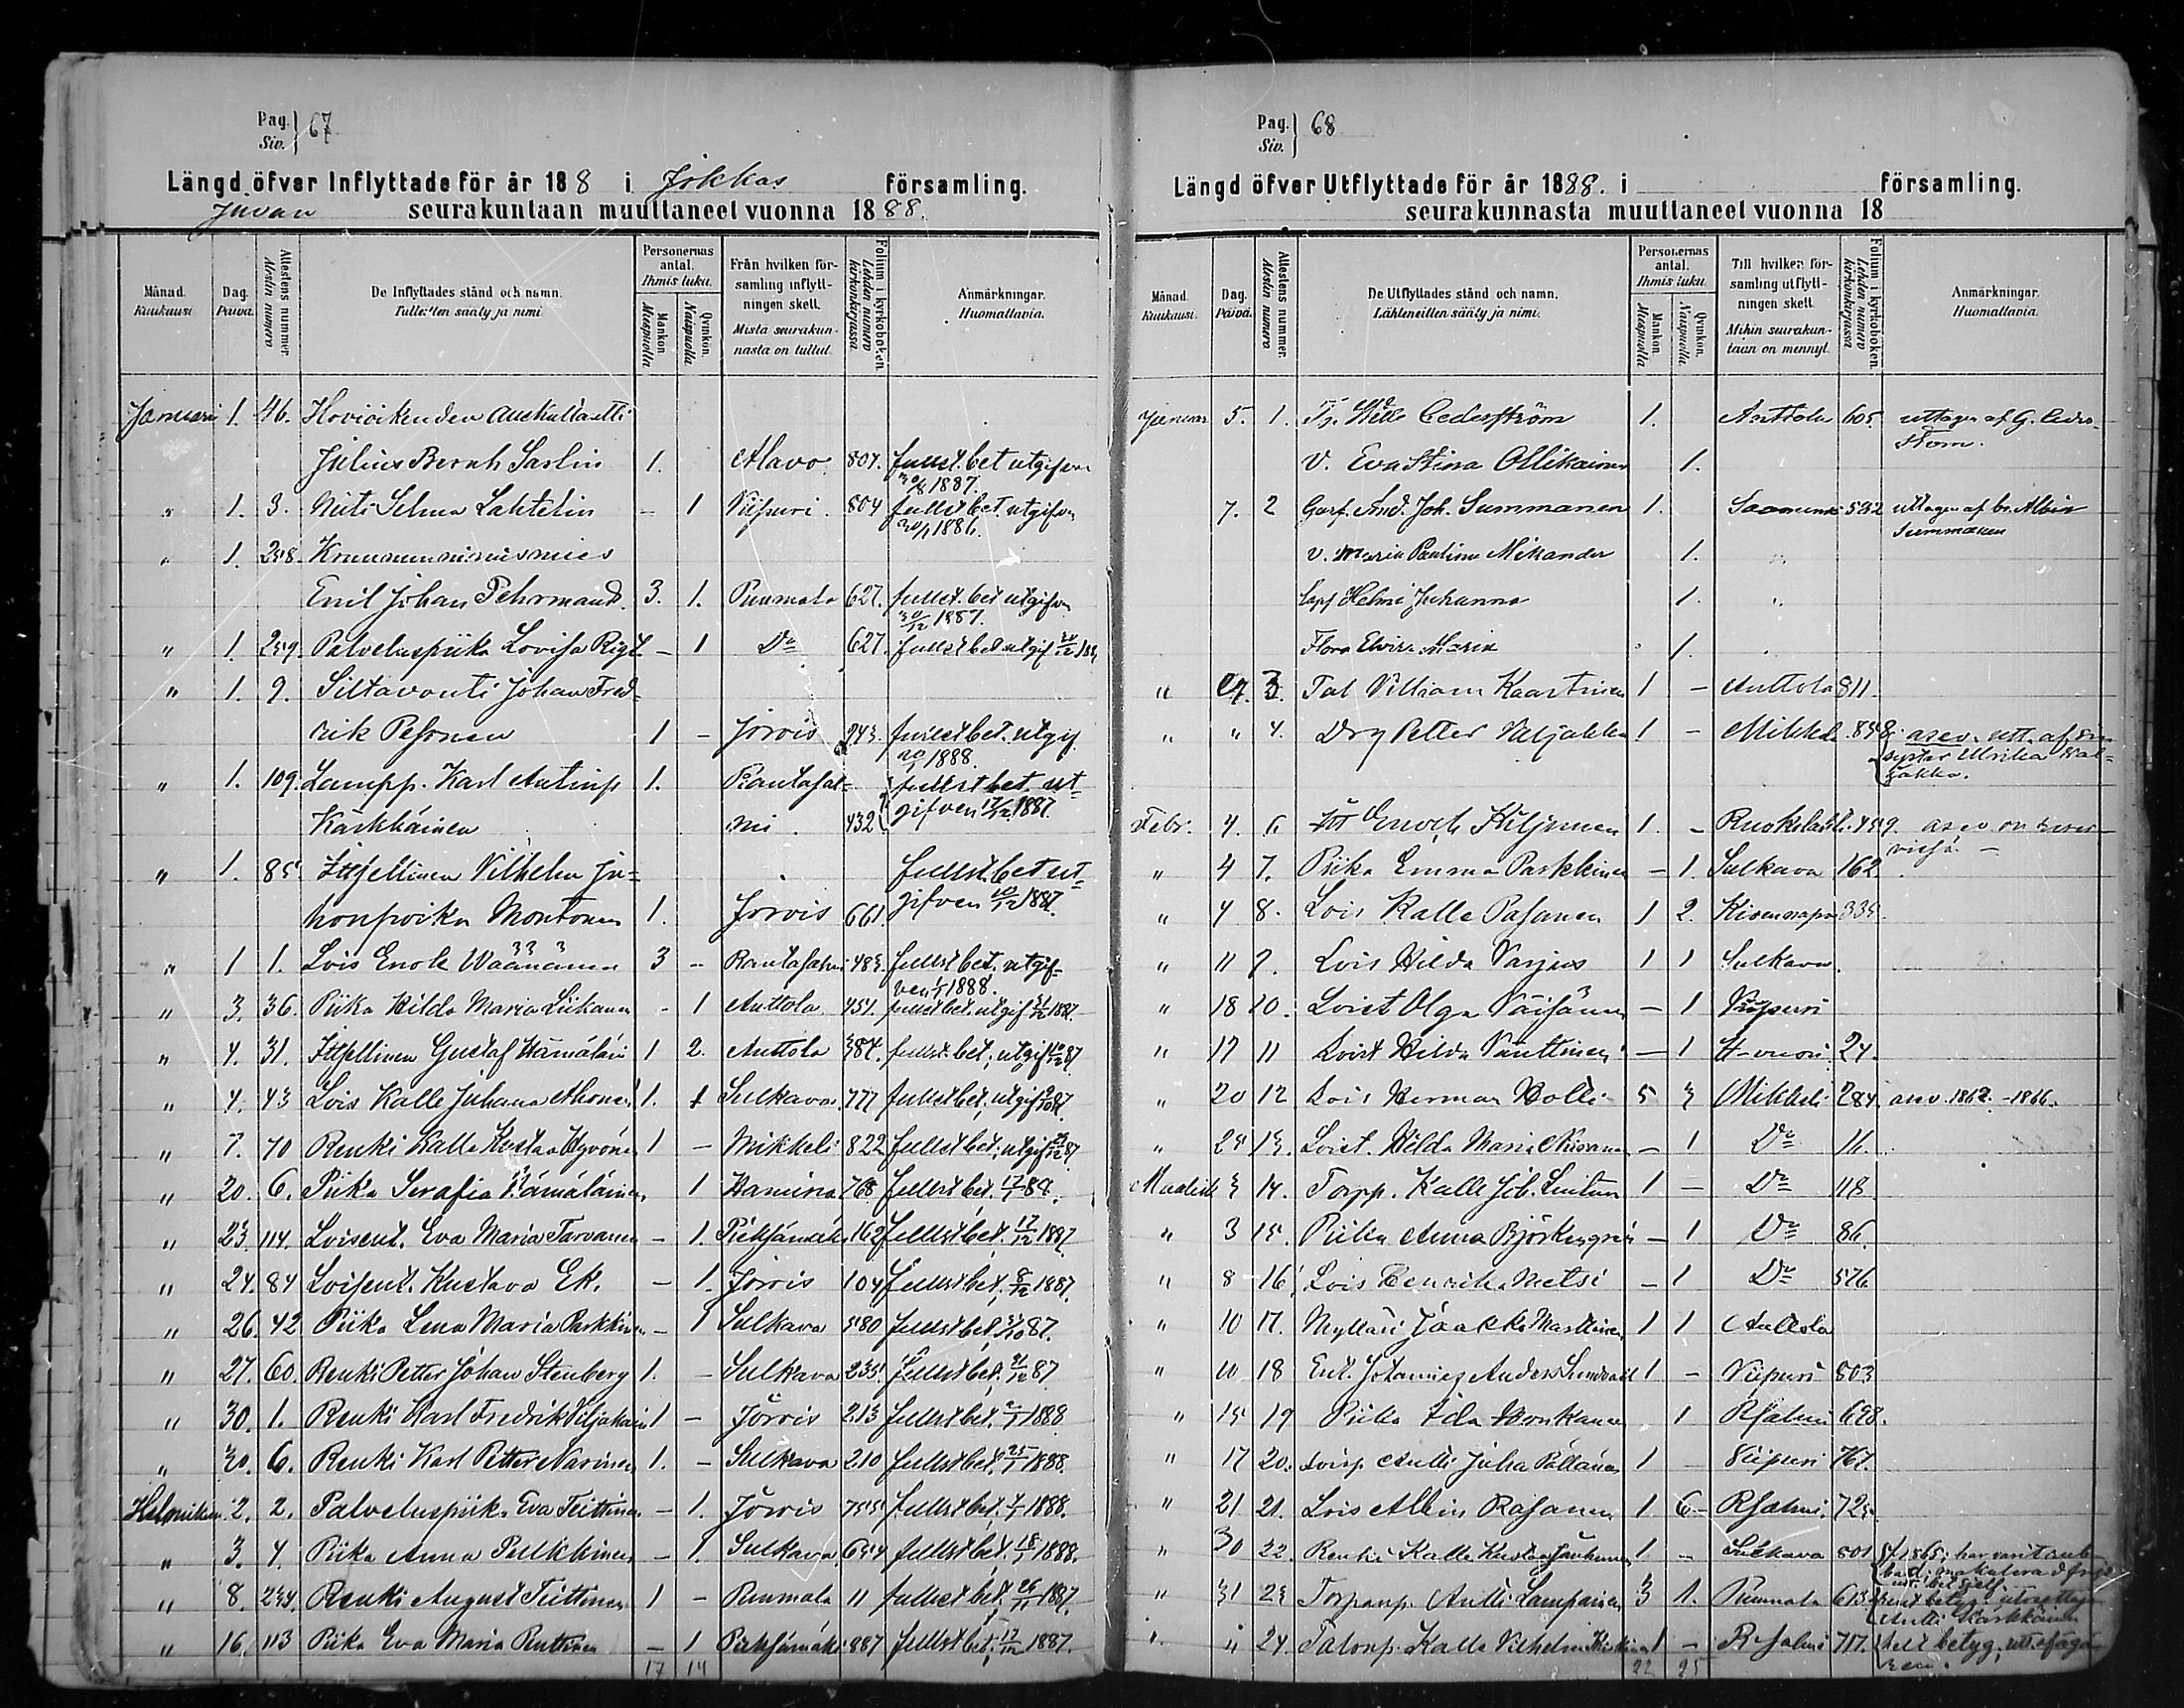 Pag. Siv. 67
Längd öfver Inflyttade för år 188 i Jokkas församling.
Juvan seurakuntaan muuttaneet vuonna 1888.
Månad. Kuukausi.
Dag. Päivä.
Attestens nummer. Atestin numero
De Inflyttades stånd och namn.
Personernas antal. Ihmis luku.
Mankön. Miespuolia
Qvinkön. Naispuolia
Från hvilken församling inflyttningen skett.
Mistä seurakunnasta on tullut.
Folium i kyrkoboken. Lehden numero kirkonkirjassa
Anmärkningar. Huomattavia.
Januari 1. 46. Hovioikeuden auskultantti
Julius Bernh Sarlin 1. Alavo 804. fullst. bet utgifven 1887.
" 1. 3. Neiti Selma Lahtelin - 1 Viipuri. 804 fullst bet. utgifven 1886.
" 1. 258. Kruununnimismies
Emil Johan Pehrmand. 3. 1. Puumala 627. fullst. bet utgifven 30/12 1887.
" 1. 259. Palveluspiika Lovisa - 1 Do 627. fullst bet utgif
" 1. 9. Siltavouti Johan Fred-
rik Pesonen 1 - Jorois 243. fullst bet. utgif 1888.
" 1. 109. Lampp. Karl 1. Rantasal-
Kärkkäinen mi. 432 fullst bet. utgifven 17/12 1887.
" 1. 85. Itsellinen Vilhelm Ju-
Montonen 1. Jorois 661. fullst. bet utgifven 1887.
" 1 1. Lois Enok Wäänänen 3 - Rantasalmi 483. fullst bet. utgifven 1888.
" 3. 36. Piika Hilda Maria Liikanen - 1 Anttola 454. fullst bet. utgif 1887.
" 4. 31. Itsellinen Gustaf Hämäläin 1 2. Anttola 384. fullst. bet. utgif 87
" 4. 43 Lois Kalle Juhana Ahonen 1. 1 Sulkava. 777 fullst bet. utgif 87
" 7. 70 Renki Kalle Kustaa Hyvönen 1 - Mikkeli 822 fullst bet. utgif 87.
" 20. 6. Piika Serafia Hämäläinen 1 Hamina 768. fullst bet. 17/1 88.
" 23. 114. Loisent. Eva Maria Tarvanen - 1. Pieksämäki 162 fullst bet. 17/12 1887.
" 24. 84 Loisent. Kustava Ek. - 1. Jorois 104 fullst bet. 8/12 1887.
" 26. 42 Piika Lena Maria Parkkinen - 1 Sulkava 580 fullst bet. 87.
" 27. 60. Renki Petter Johan Stenberg 1. - Sulkava 235. fullst bet. 87
" 30. 1. Renki Karl Fredrik Viljakain 1 - Jorois 213 fullst bet. 1888
" 30. 6. Renki Karl Petter Narinen 1. - Sulkava 210 fullst bet. 25/1 1888.
Helmikuu 2. 2. Palveluspiika Eva Teittinen - 1. Jorois 755 fullst bet. 1888.
" 3. 4. Piika Anna Pulkkinen - 1. Sulkava 654 fullst bet. 18/1 1888.
" 8. 234. Renki August Teittinen 1 - Puumala 11 fullst bet. 26/11 1887.
" 16. 113 Piika Eva Maria Penttinen - 1 Pieksämäki 887 fullst bet. 17/12 1887.
17 14
Pag. Siv. 68
Längd öfver Utflyttade för år 1888. i församling.
seurakunnasta muuttaneet vuonna 18
Månad. Kuukausi.
Dag. Päivä.
Attestens nummer. Atestin numero
De Utflyttades stånd och namn.
Lähteneitten sääty ja nimi.
Personernas antal. Ihmis luku
Mankön. Miespuolia
Qvinkön. Naispuolia
Till hvilken församling utflyttningen skett.
Mihin seurakuntaan on mennyt.
Folium i kyrkoboken. Lehden numero kirkonkirjassa
Anmärkningar. Huomattavia.
Januar 5. 1. Cederström 1. Anttola 605. uttagen af G. Ceder-
ström.
V. Eva Stina Ollikainen 1.
7. 2 And. Joh. Summanen 1. 592 uttagen af br. Albin Summanen
v. Maria Paulina Mikander 1. "
Helmi Juhanna 1. "
Flora Elvira Maria 1. "
" 3. Tal Villiam Kaartinen 1 - Anttola 811.
" " 4. Drg Petter Valjakka 1 - Mikkeli 848
syster Ulrika Valjakka.
Febr. 4. 6 Enoch Kiljunen 1. - Ruokolahti 459.
" 4 7. Piika Emma Parkkinen - 1. Sulkava 162
" 4 8. Lois Kalle Pasanen 1 2. 335.
" 11 9. Lois Hilda Varjus 1 1 Sulkava.
" 18 10. Loist Olga Väisänen - 1 Viipuri
" 17 11 Loist Hilda Vänttinen - 1 24.
" 20 12 Lois Herman Holti 5 3 Mikkeli 284. asev. 1862. -1866.
" 25 13. Loist. Hilda Maria - 1 Do 16.
Maalisk 3 14. Torpp. Kalle Joh. 1 - Do 118
" 3 15. Piika Anna Björkengren - 1 Do 86.
" 8 16. Lois Henrika Metsi - 1 Do 576.
" 10 17. Mylläri Jaakko Marttinen 1 1 Anttola
" 10 18 Ent. Johannes Anders Sundvall 1 - Viipuri 803
" 15 19 Piika Ida Honkanen 1 Rsalmi 698.
" 17 20. Loisp. Antti Juha Pällänen 1 Viipuri 767.
" 21 21. Lois Albin Rasanen 1. 6 - Rsalmi. 725.
" 30 22. Renki Kalle Kustaa 1 - Sulkava 801
" 31 23 Torpanp. Antti Lampainen 3 1. Puumala 613
Antti Karkkainen
" " 24. Talonp. Kalle Vilhelm 1 - Rsalmi 717. betyg.
22 25